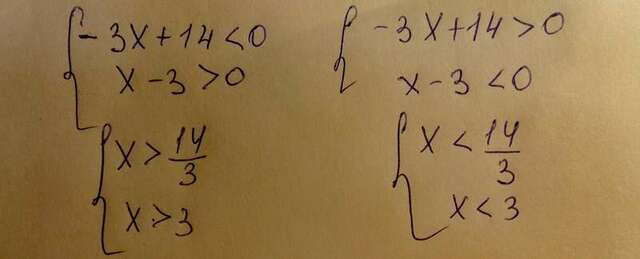 - 3x + 14 < 0
x - 3 > 0
- 3x + 14 > 0
x - 3 < 0
x > 14/3
x > 3
x < 14/3
x < 3